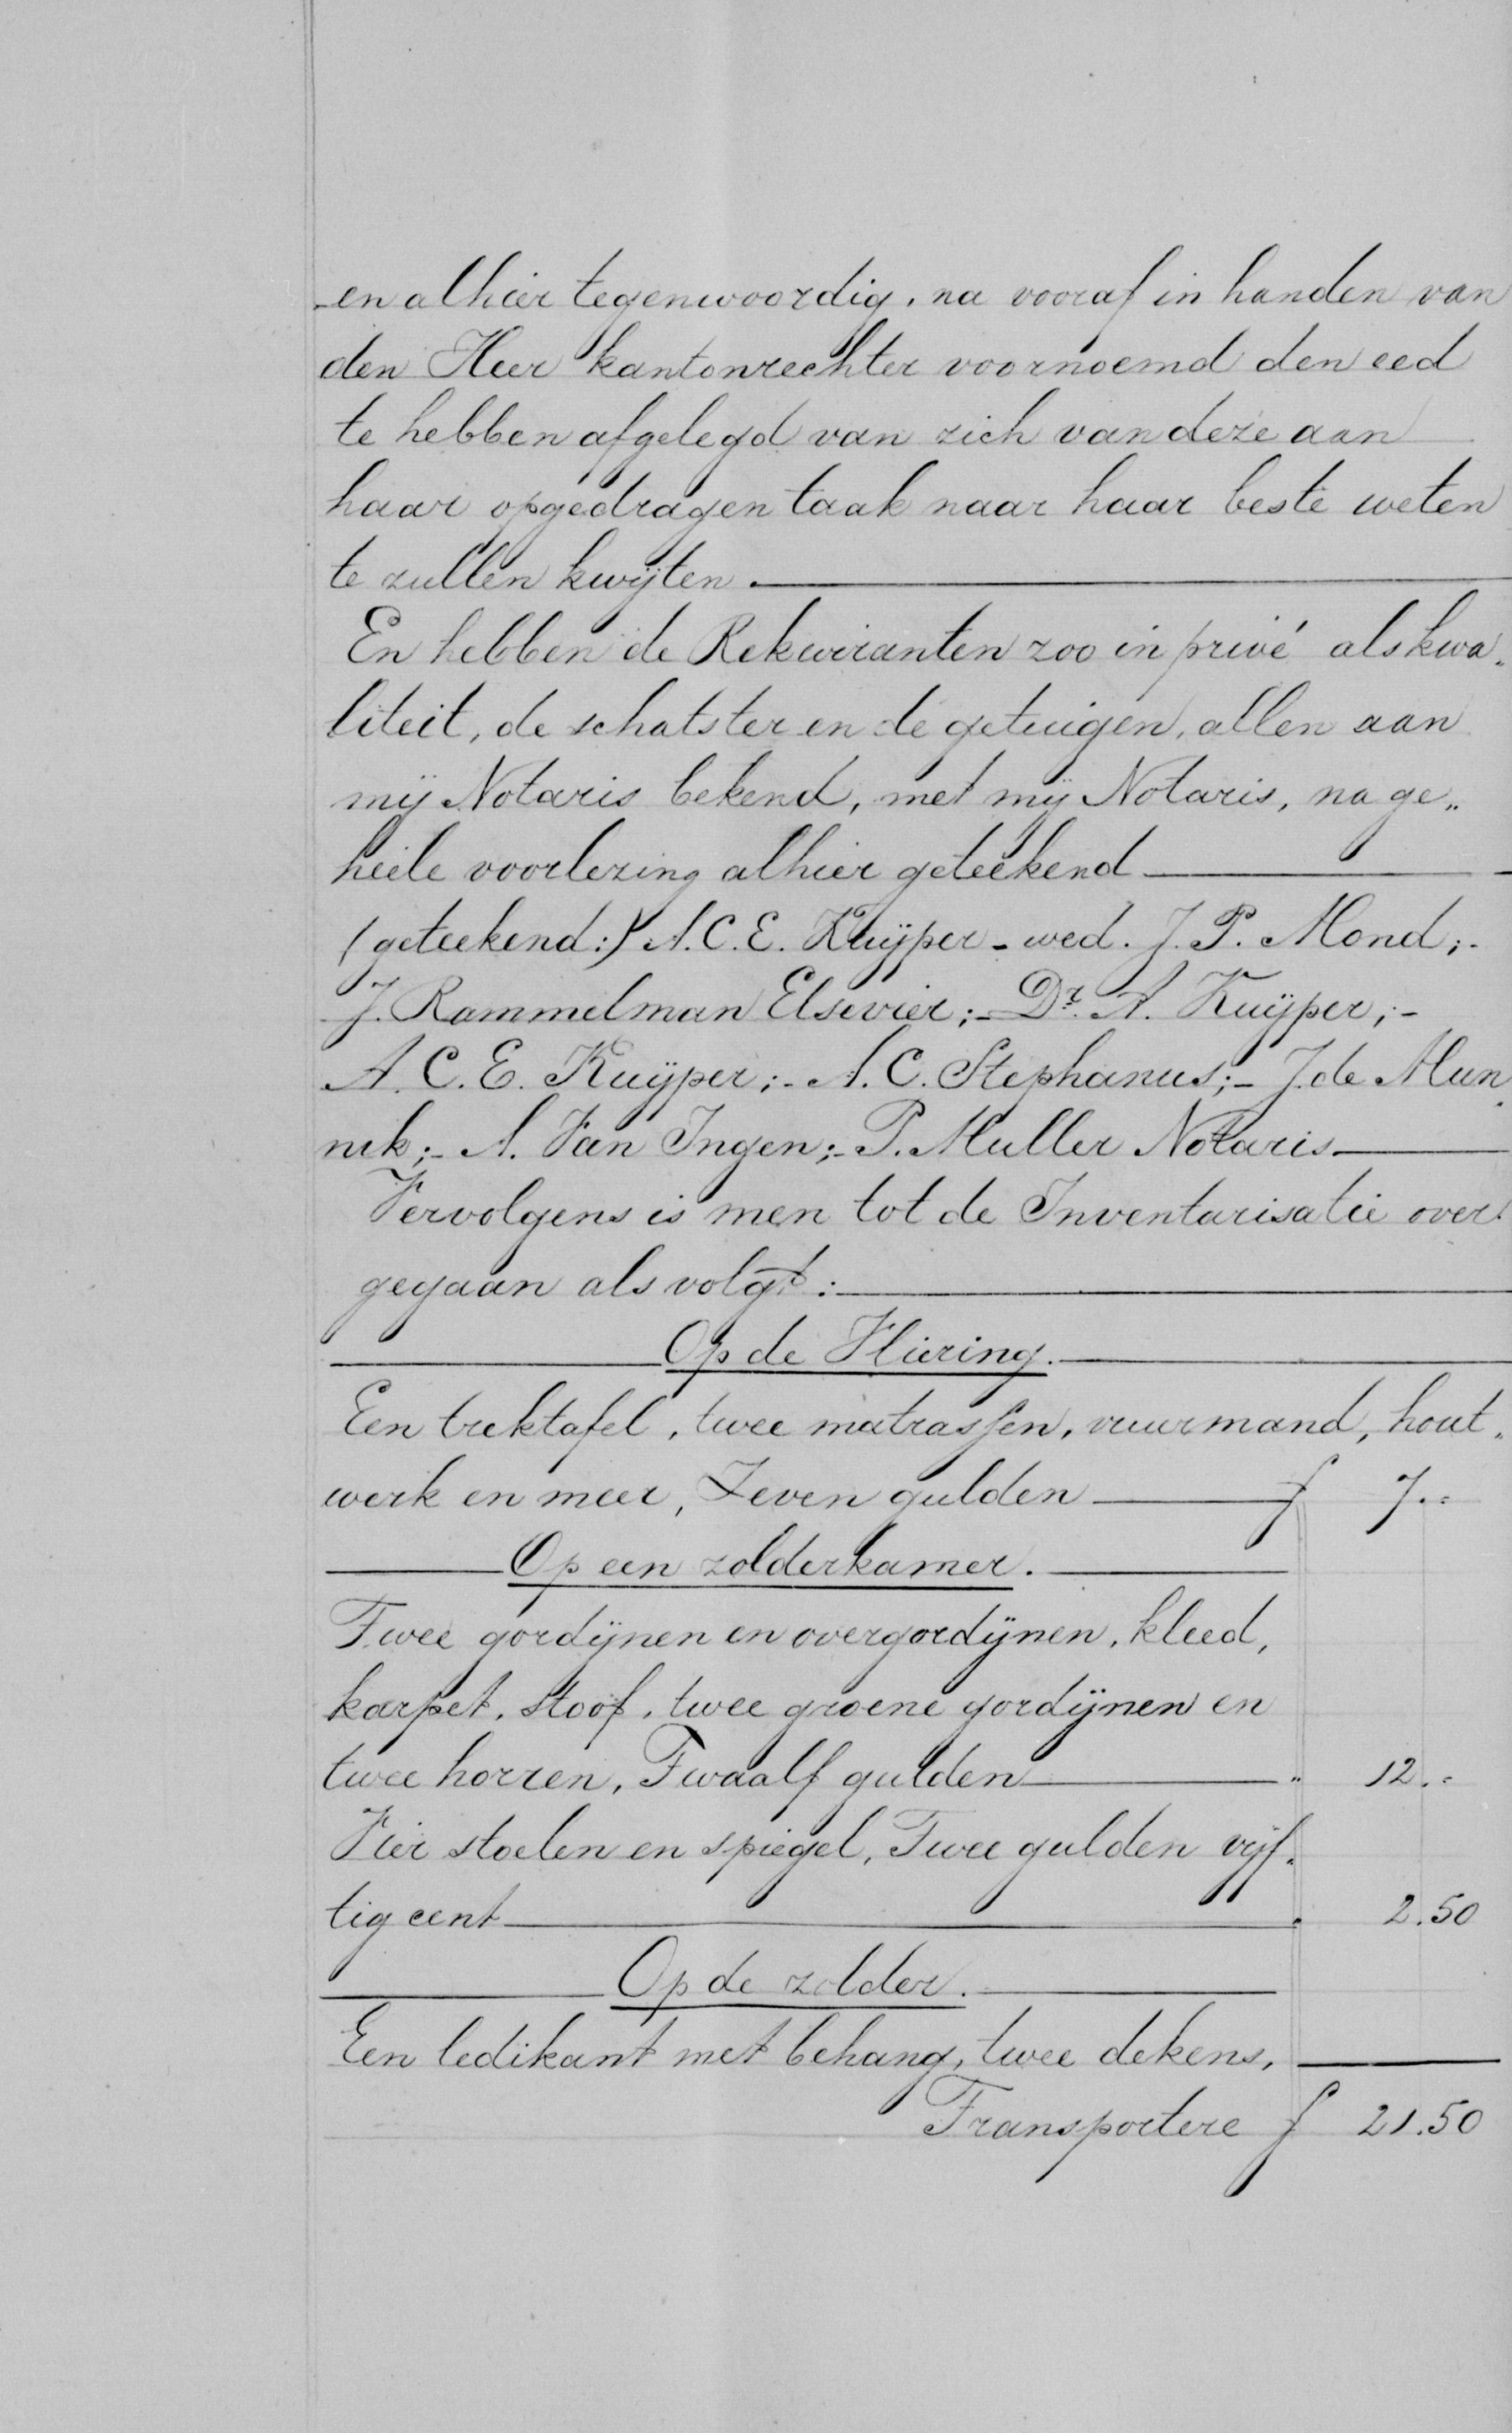 en alhier tegenwoordig, na vooraf in handen van
den Heer kantonrechter voornoemd den eed
te hebben afgelegd van zich van deze aan
haar opgedragen taak naar haar beste weten
te zullen kwijten.
En hebben de Rekwiranten zoo in privé als kwa„
liteit, de schatster en de getuigen, allen aan
mij Notaris bekend, met mij Notaris, na ge„
heele voorlezing alhier geteekend
(geteekend:) A. C. E. Kuijper - wed. J. P. Mond;-
J. Rammelman Elsevier;- Dr. A. Kuijper;-
A. C. E. Kuijper;- A. C. Stephanus;- J. de Mun„
nik;- A. Van Ingen;- P. Muller Notaris
Vervolgens is men tot de Inventarisatie over„
gegaan als volgt:
Op de Vliering.
Een trektafel, twee matrassen, vuurmand, hout„
werk en meer, Zeven gulden f 7.-
Op een zolderkamer.
Twee gordijnen en overgordijnen, kleed,
karpet, stoof, twee groene gordijnen en
twee horren, Twaalf gulden „ 12.-
Vier stoelen en spiegel, Twee gulden vijf„
tig cent „ 2.50
Op de zolder.
Een ledikant met behang, twee dekens,
Transportere f 21.50